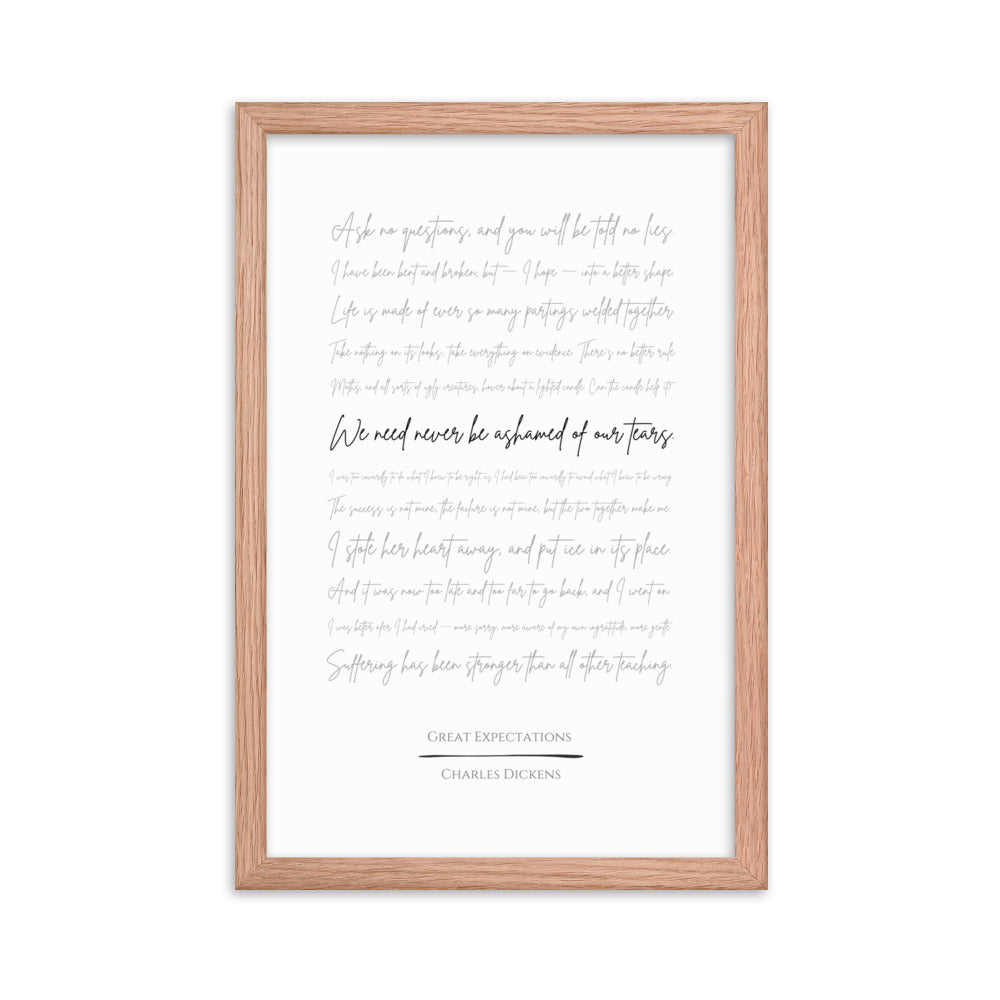 Ask no questions, and you will be told no lies.
I have been bent and broken, but — I hope — into a better shape.
Life is made of ever so many partings welded together.
Take nothing on its looks, take everything on evidence. There's no better rule.
Moths, and all sorts of ugly creatures, hover about a lighted candle. Can the candle help it?
We need never be ashamed of our tears.
I was too cowardly to do what I knew to be right, as I had been too cowardly to avoid what I knew to be wrong.
The success is not mine, the failure is not mine, but the two together make me.
I stole her heart away, and put ice in its place.
And it was now too late and too far to go back, and I went on.
I was better after I had cried — more sorry, more aware of my own ingratitude, more gentle.
Suffering has been stronger than all other teaching.
Great Expectations
Charles Dickens